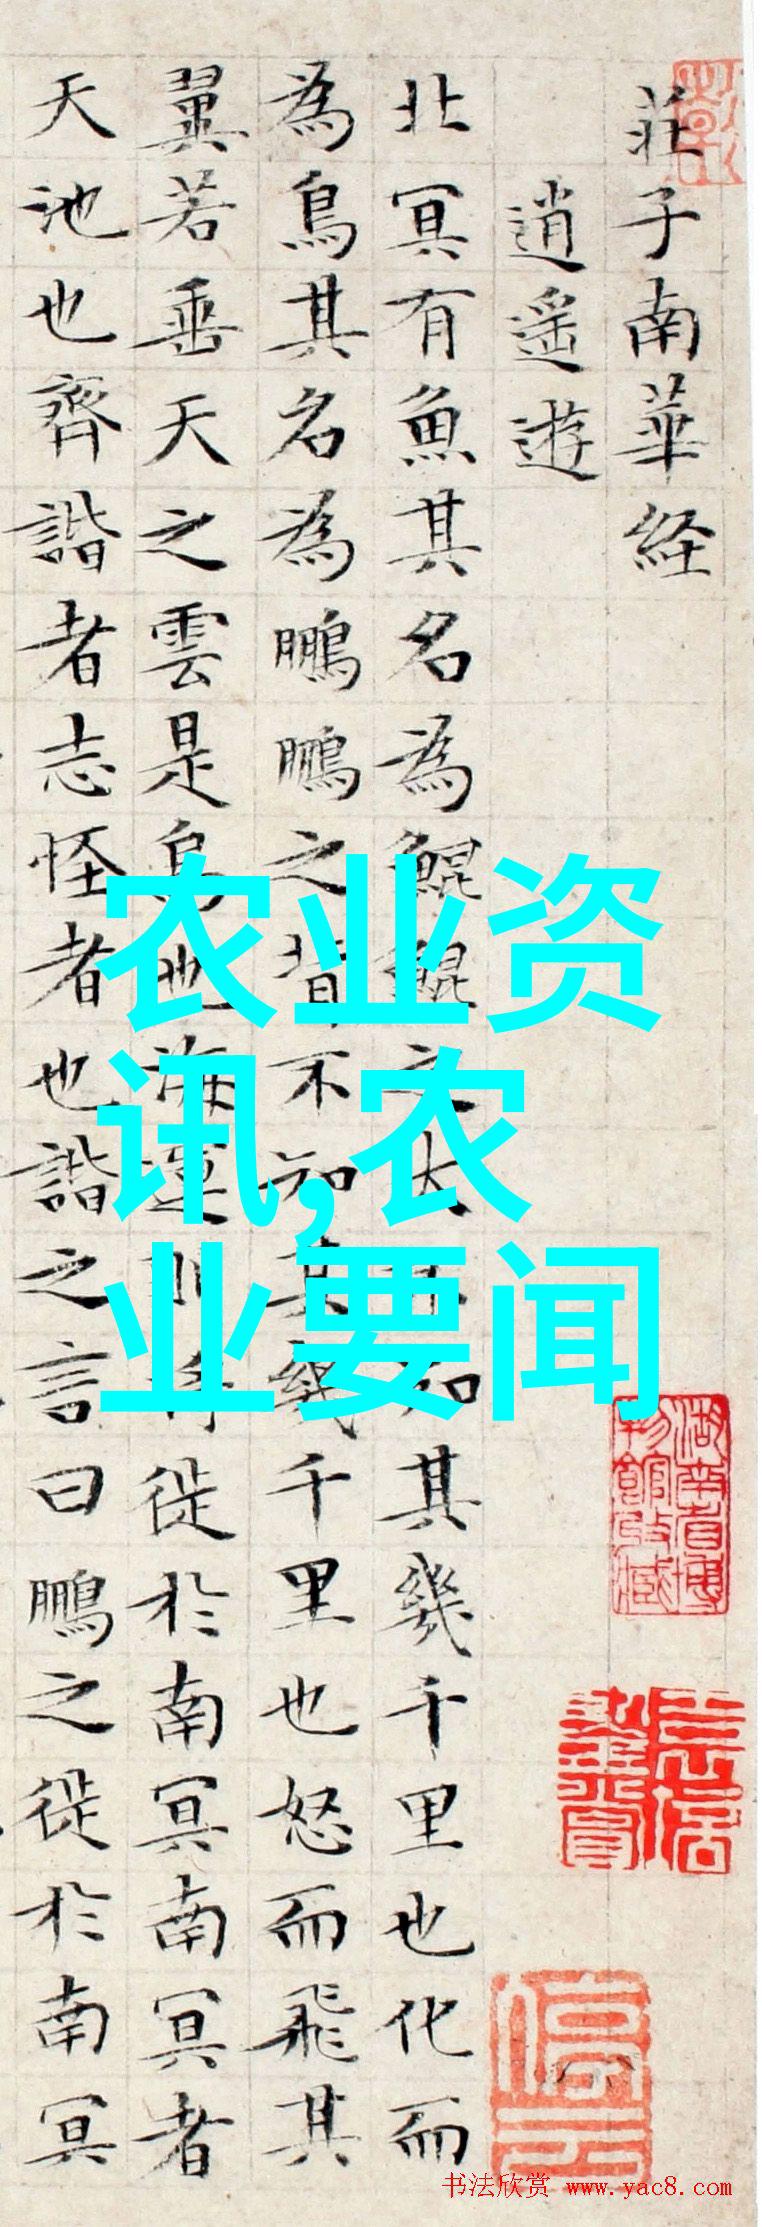 莊子南華経
逍遥遊
北冥有魚其名為鯤鯤之大不知其幾千里也化而
為鳥其名為鵬鵬之背不知其幾千里也怒而飛其
翼若垂天之雲是鳥也海運則將徙於南冥南冥者
天池也齊諧者志怪者也諧之言曰鵬之徙於南冥
农业资
讯,农
业要闻
湖南省博
物館收藏
停云
书法欣赏 www.yac8.com